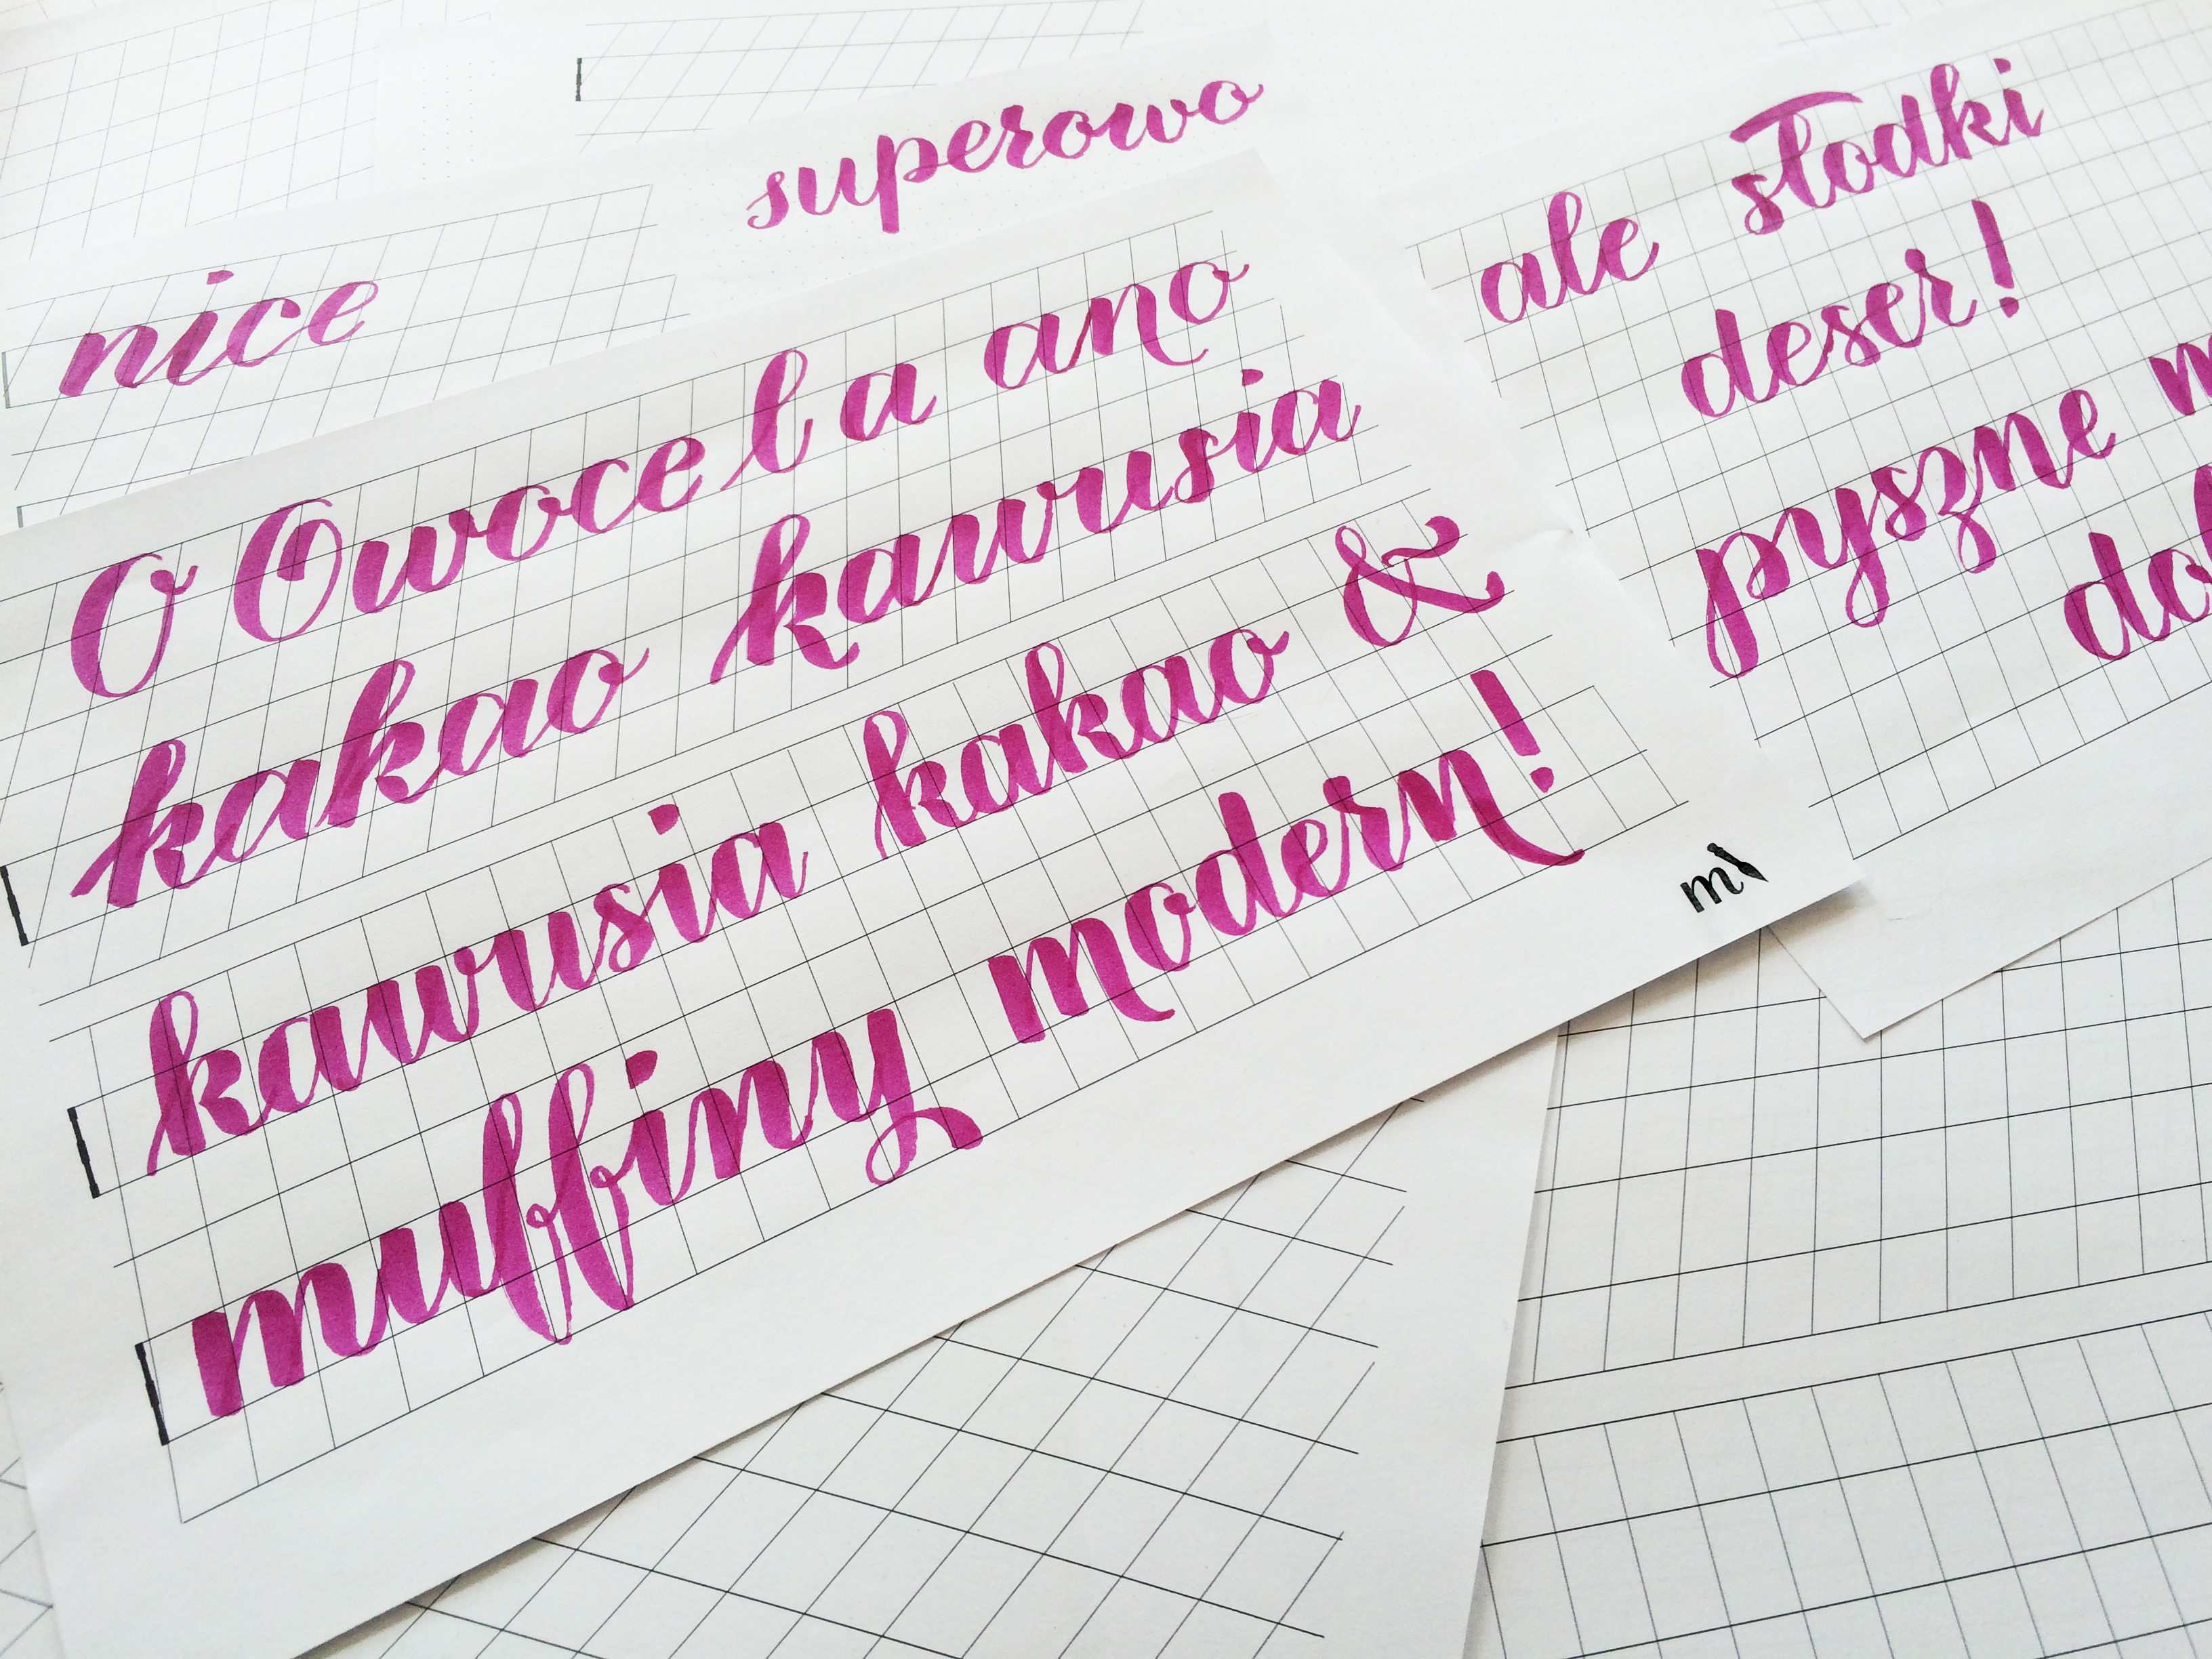 superowo
nice
O Owoce l a ano
kakao kawusia
kawusia kakao &
muffiny modern!
m
ale słodki
deser!
pyszne m
do